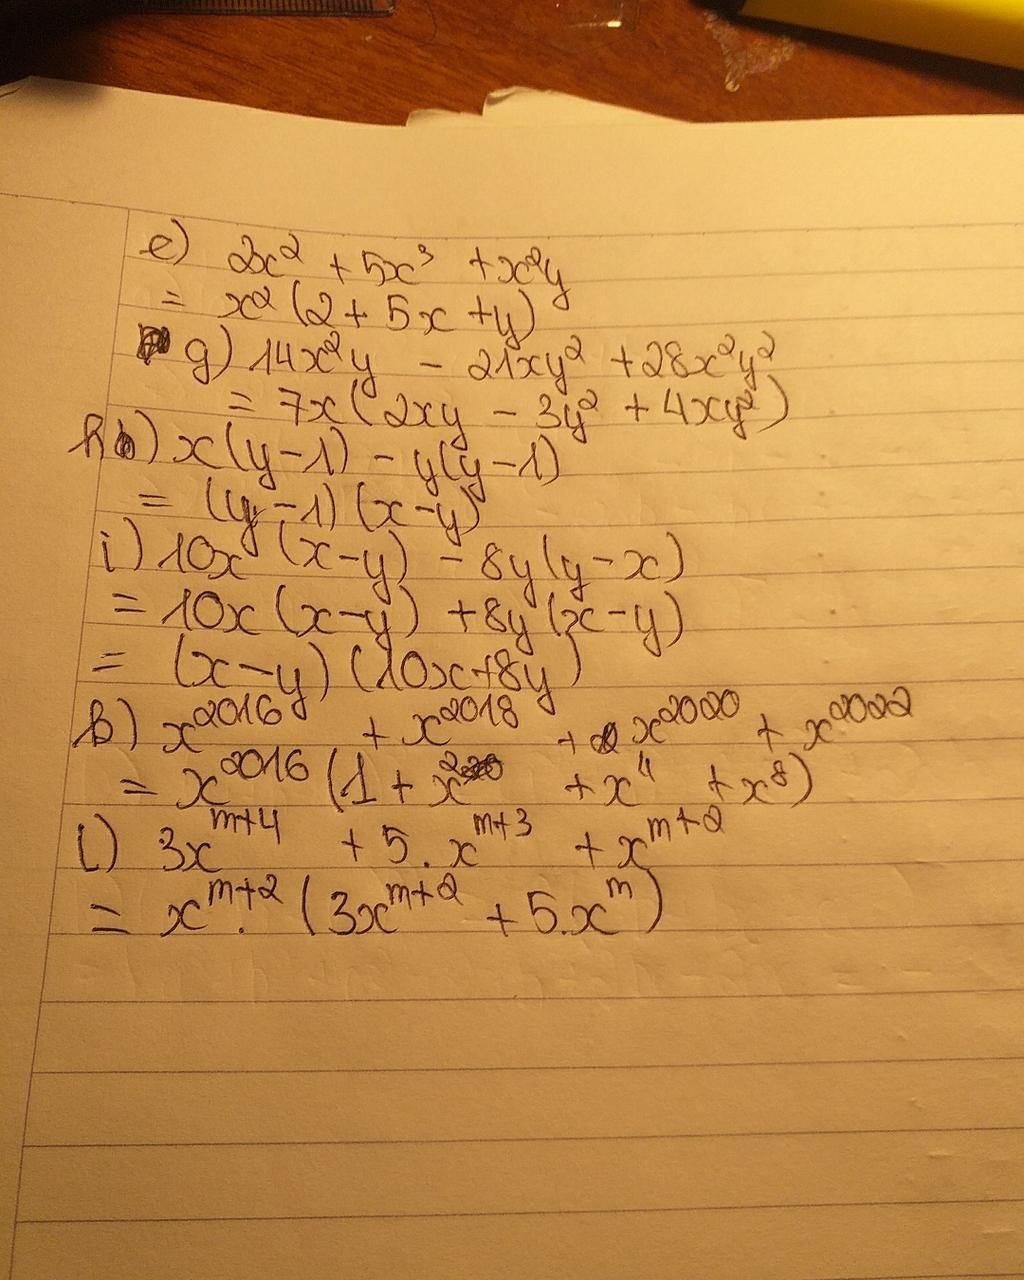 e) 2x² + 5x³ + x²y
= x² (2 + 5x + y)
g) 14x²y - 21xy² + 28x²y²
= 7x(2xy - 3y² + 4xy²)
h) x(y-1) - y(y-1)
= (y-1) (x-y)
i) 10x (x-y) - 8y(y-x)
= 10x (x-y) + 8y(x-y)
= (x-y) (10x+8y)
k) x²⁰¹⁶ + x²⁰¹⁸ + x²⁰²⁰ + x²⁰²²
= x²⁰¹⁶ (1 + x² + x⁴ + x⁸)
l) 3x^{m+4} + 5.x^{m+3} + x^{m+2}
= x^{m+2}. (3x^{m+2} + 5.x^{m})